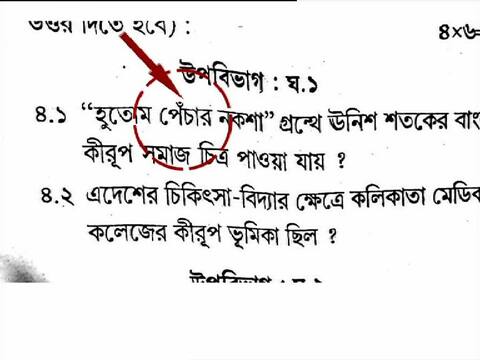 উত্তর দিতে হবে) :
৪×৬=
উপবিভাগ : ঘ.১
৪.১ “হুতোম পেঁচার নকশা” গ্রন্থে ঊনিশ শতকের বাং
কীরূপ সমাজ চিত্র পাওয়া যায় ?
৪.২ এদেশের চিকিৎসা-বিদ্যার ক্ষেত্রে কলিকাতা মেডিক
কলেজের কীরূপ ভূমিকা ছিল ?
উপবিভাগ :